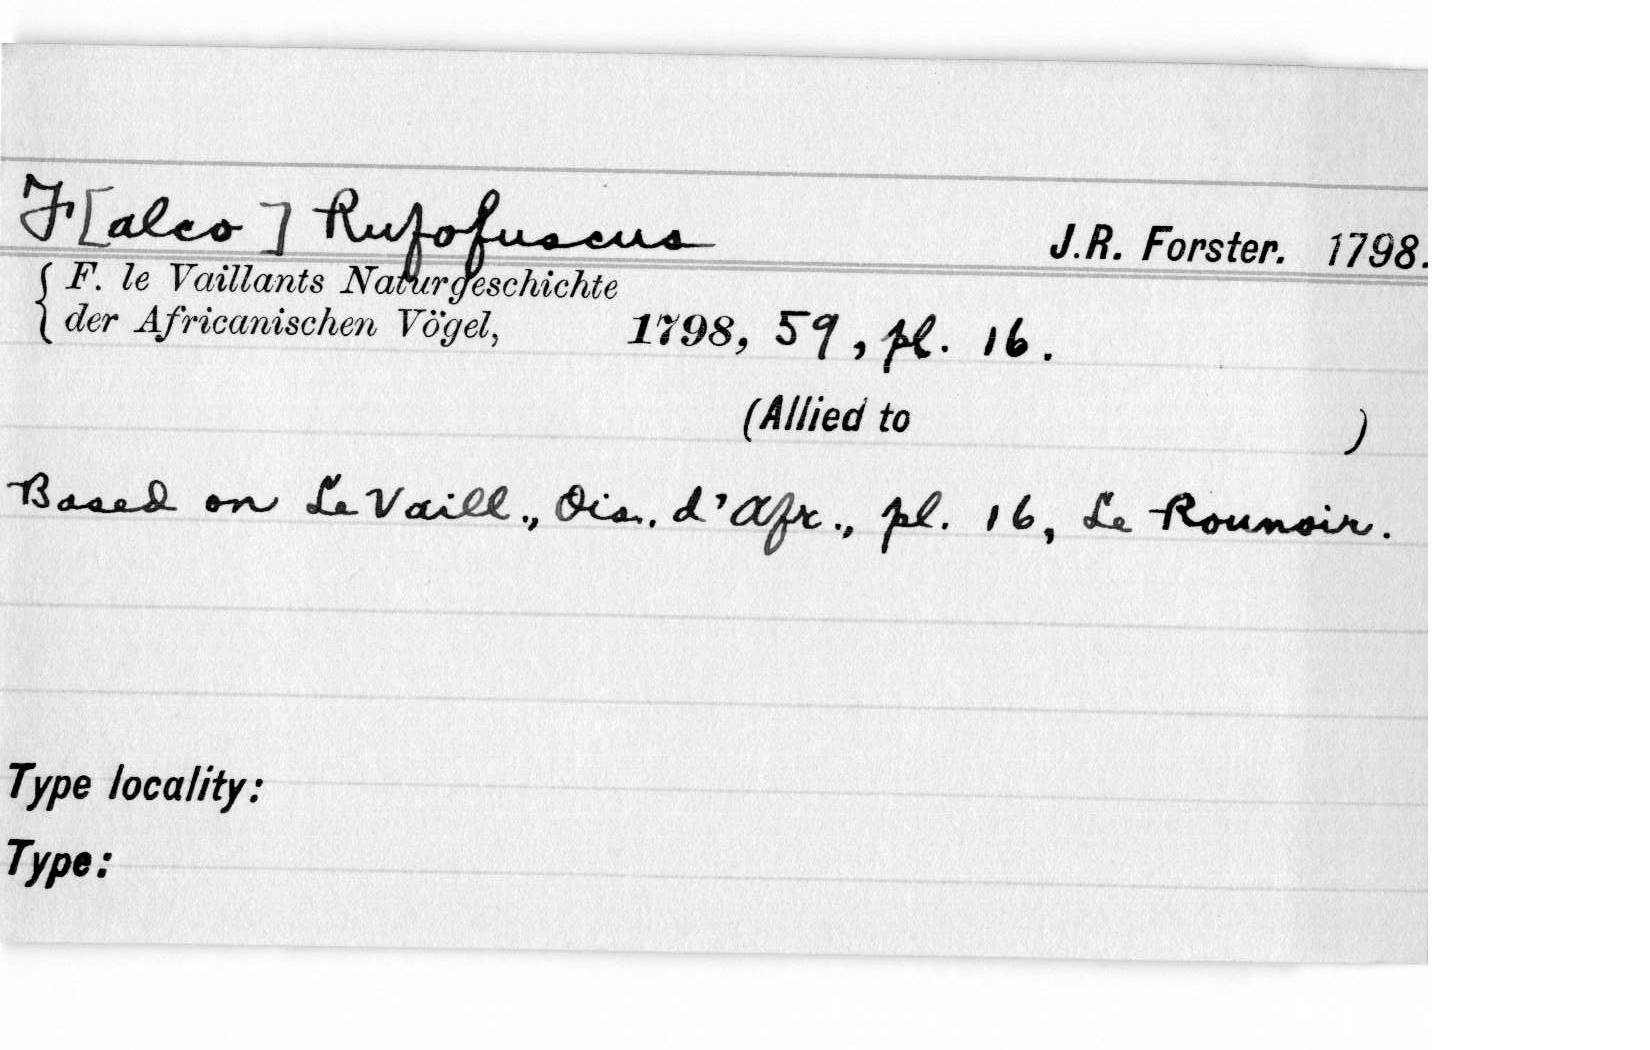 F[alco] Rufofuscus J.R. Forster. 1798.
F. le Vaillants Naturgeschichte
der Africanischen Vögel, 1798, 59, pl. 16.
(Allied to )
Based on Le Vaill., Ois. d'Afr., pl. 16, Le Rounoir.
Type locality:
Type: